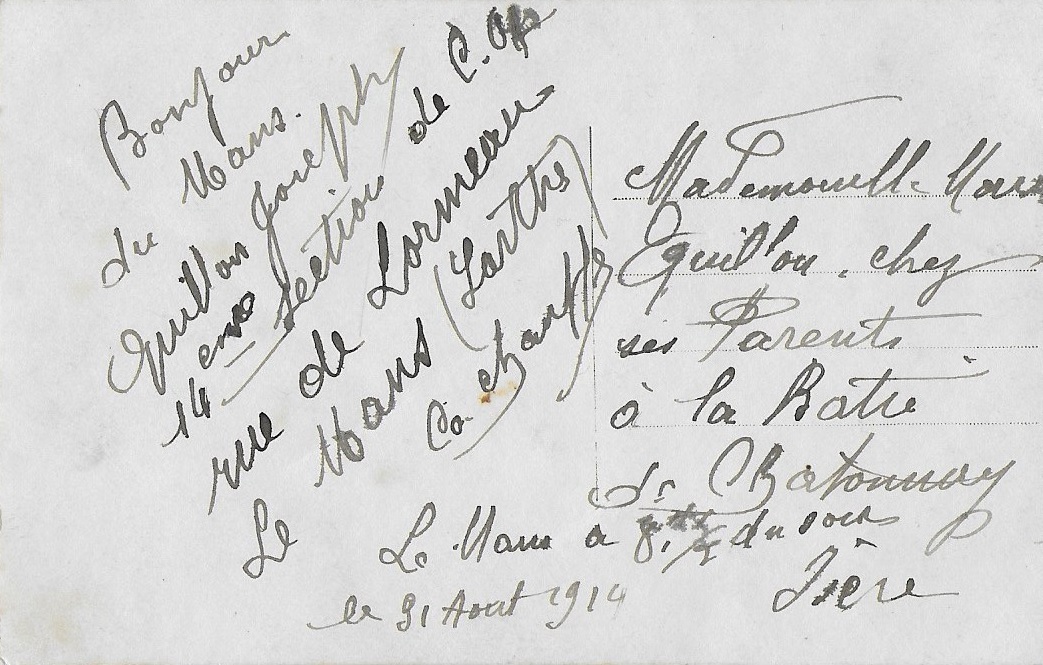 Bonjour
du Mans.
Quillon Joseph
14eme section de C.O.A
rue de Lormeau
Le Mans (Sarthe)
Ça chauffe
Mademoiselle Marie
Quillon, chez
ses Parents
à la Batie
de Chatonnay
Isère
Le Mans a 8h du soir
le 31 Aout 1914